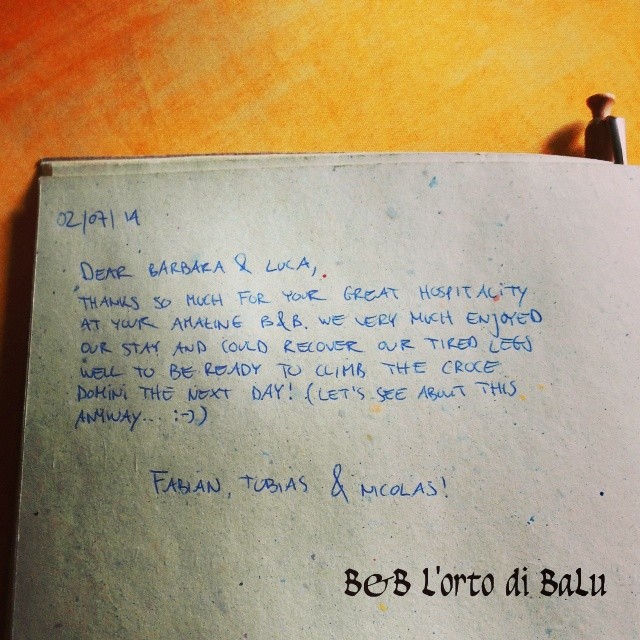 02/07/14
DEAR BARBARA & LUCA,
THANKS SO MUCH FOR YOUR GREAT HOSPITALITY
AT YOUR AMAZING B&B. WE VERY MUCH ENJOYED
OUR STAY AND COULD RECOVER OUR TIRED LEGS
WELL TO BE READY TO CLIMB THE CROCE
DOMINI THE NEXT DAY! (LET'S SEE ABOUT THIS
ANYWAY... :-))
FABIAN, TOBIAS & NICOLAS!
B&B L'orto di BaLu